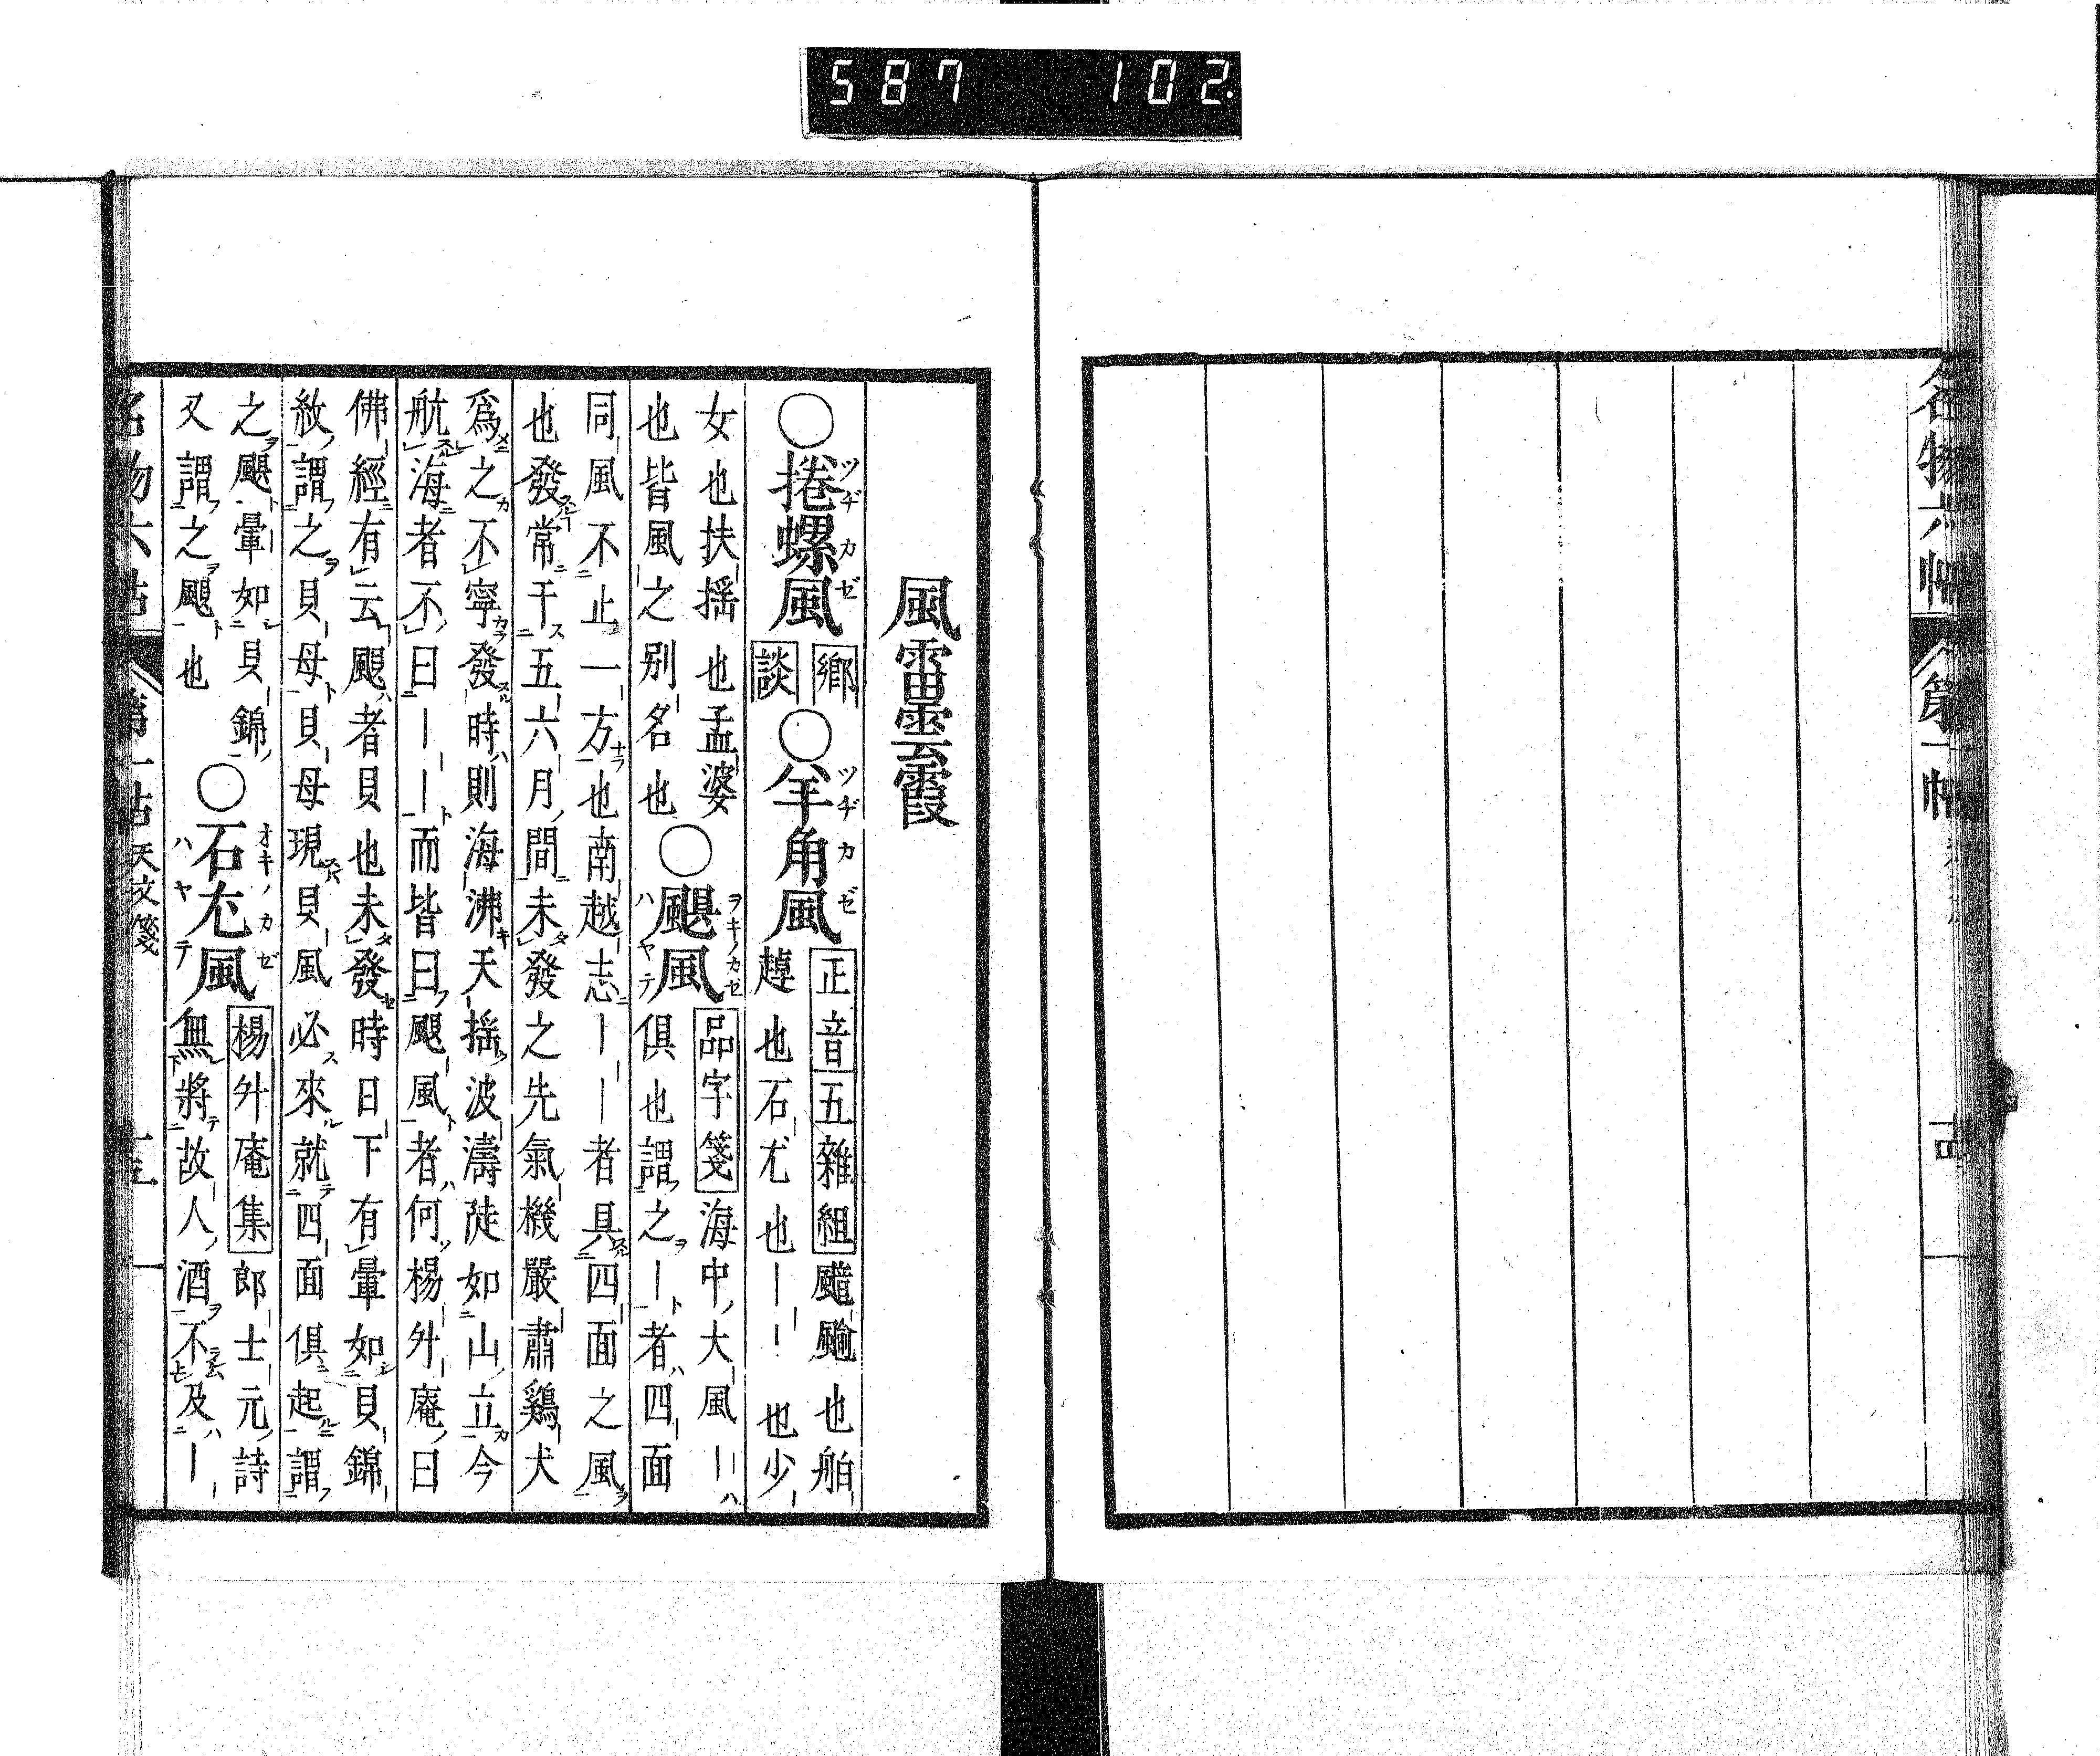 587 102
名物六帖 第一帖 十四
風雷雲霞
○捲螺風 ツヂカゼ 鄉談 ○羊角風 ツヂカゼ 正音 五雜組 也舶
趠也石尤也〡〡也少
女也扶搖也孟婆
也皆風之別名也 ○颶風 ヲキノカゼ ハヤテ 品字箋 海中大風〡
俱也謂之〡者四面
同風不止一方也南越志〡〡者具四面之風
也發常于五六月間未發之先氣機嚴肅鷄犬
爲之不寧發時則海沸天搖波濤陡如山立今
航海者不曰〡〡而皆曰颶風者何楊升庵曰
佛經有云颶者貝也未發時日下有暈如貝錦
故謂之貝母貝母現貝風必來就四面俱起謂
之颶暈如貝錦
又謂之颶也 ○石尤風 オキノカゼ ハヤテ 楊升庵集 郎士元詩
無將故人酒不及〡
名物六帖 第一帖 天文箋 十五